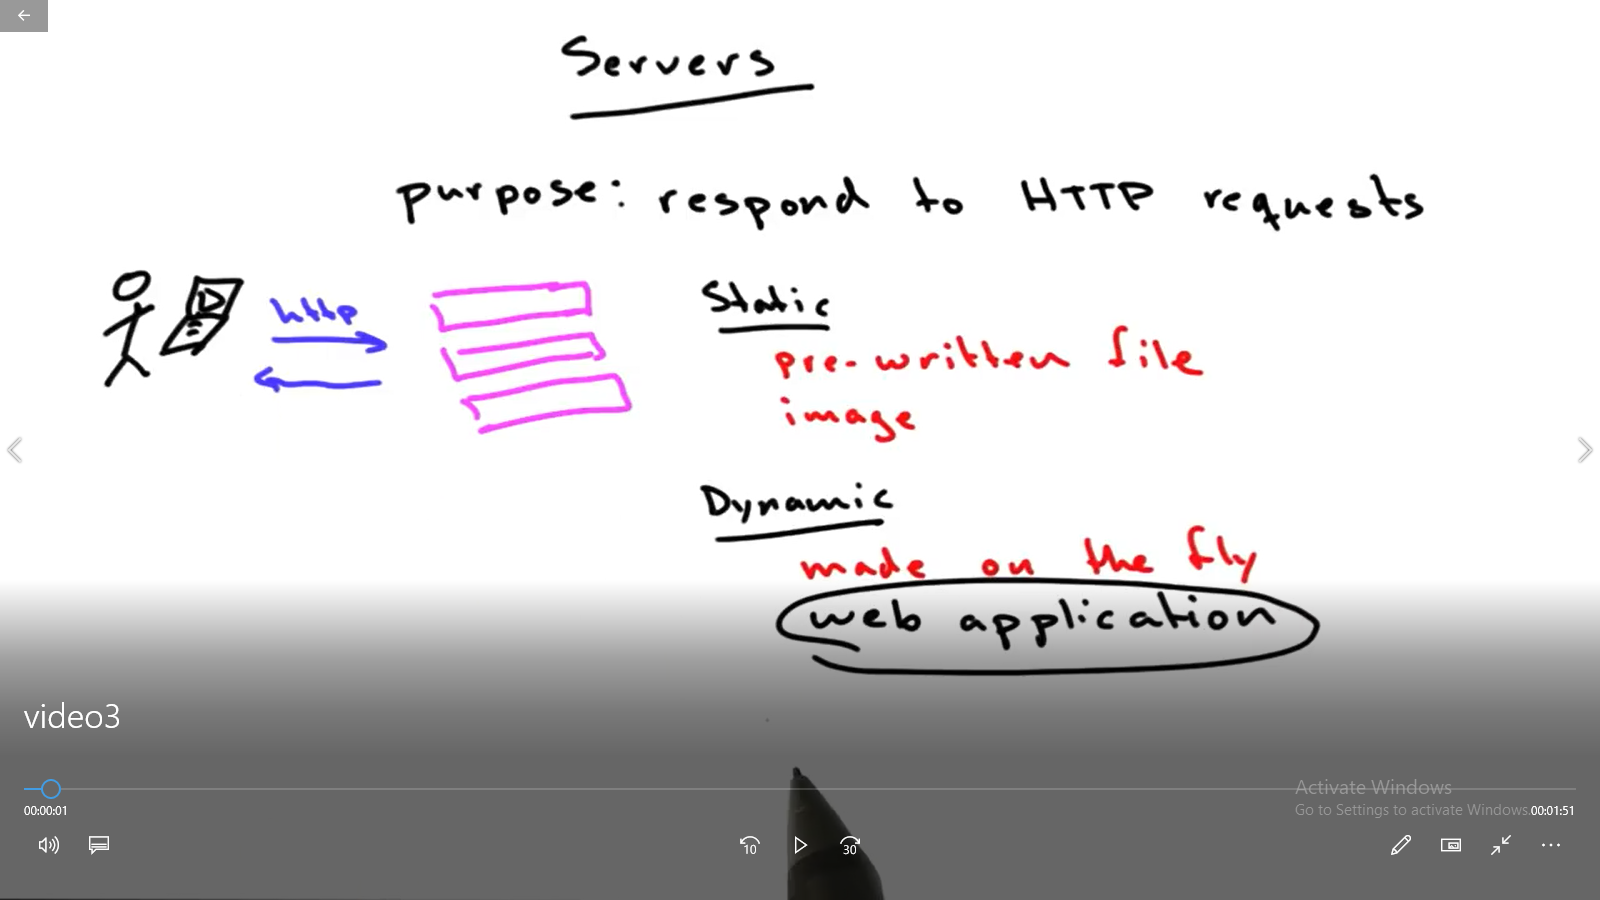 Servers
purpose: respond to HTTP requests
http
Static
pre-written file
image
Dynamic
made on the fly
web application
video3
Activate Windows
Go to Settings to activate Windows.
00:00:01
00:01:51
10
30